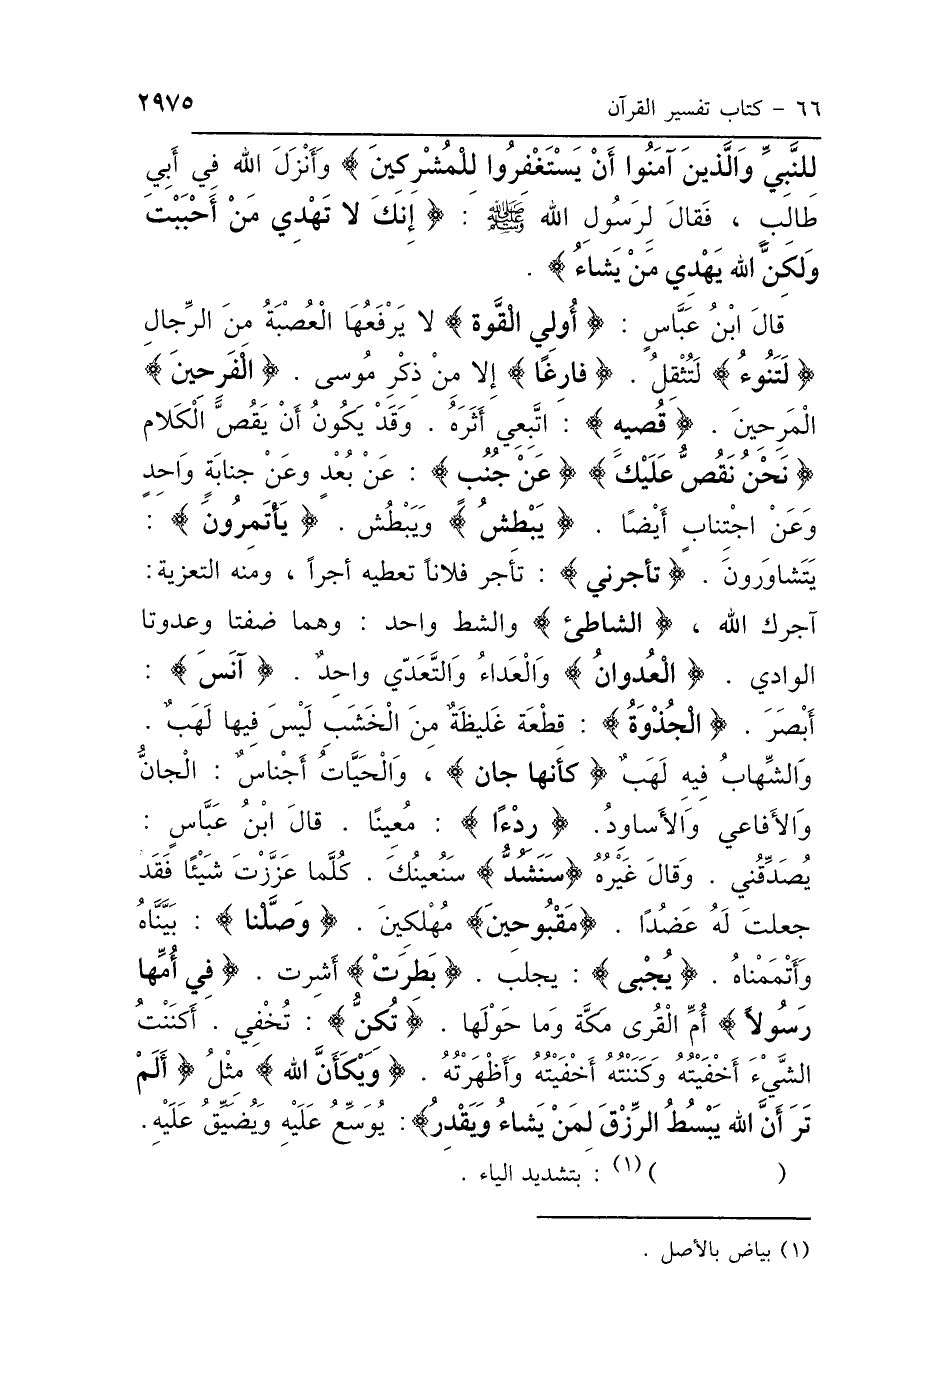 ٦٦ - كتاب تفسير القرآن
٢٩٧٥
للنَّبِيِّ وَالَّذِينَ آمَنُوا أَنْ يَسْتَغْفِرُوا لِلْمُشْرِكِينَ ﴾ وَأَنْزَلَ الله فِي أَبِي
طَالِبٍ ، فَقَالَ لِرَسُولِ الله ﷺ : ﴿ إِنكَ لا تَهْدِي مَنْ أَحْبَبْتَ
وَلَكِنَّ الله يَهْدِي مَنْ يَشاءُ ﴾ .
قالَ ابْنُ عَبَّاسٍ : ﴿ أُولي الْقُوَّة ﴾ لا يَرْفَعُهَا الْعُصْبَةُ مِنَ الرِّجالِ
﴿ لَتَنُوءُ ﴾ لَتُثْقِلُ . ﴿ فارغًا ﴾ إلا مِنْ ذِكْرِ مُوسى . ﴿ الْفَرِحِينَ ﴾
الْمَرِحِينَ . ﴿ قُصيه ﴾ : اتَّبِعِي أَثَرَهُ . وَقَدْ يَكُونُ أَنْ يَقُصَّ الْكَلام
﴿ نَحْنُ نَقُصُّ عَلَيْكَ ﴾ ﴿ عَنْ جُنُبٍ ﴾ : عَنْ بُعْدٍ وعَنْ جنابَةٍ وَاحِدٍ
وَعَنْ اجْتِنابٍ أَيْضًا . ﴿ يَبْطِشُ ﴾ وَيَبْطُش . ﴿ يَأتَمِرُونَ ﴾ :
يَتَشاوَرونَ . ﴿ تأجرني ﴾ : تأجر فلاناً تعطيه أجراً ، ومنه التعزية:
آجرك الله ، ﴿ الشاطئ ﴾ والشط واحد : وهما ضفتا وعدوتا
الوادي . ﴿ الْعُدوانُ ﴾ وَالْعَداءُ وَالتَّعَدّي واحدٌ . ﴿ آنَسَ ﴾ :
أَبْصَرَ . ﴿ الْجُذْوَةُ ﴾ : قِطْعَة غَلِيظَةٌ مِنَ الْخَشَبِ لَيْسَ فِيها لَهَبٌ .
وَالشِّهابُ فِيهِ لَهَبٌ ﴿ كأنها جان ﴾ ، وَالْحَيَّاتُ أَجْناسٌ : الْجانُّ
وَالأفاعي وَالأساودُ. ﴿ ردْءًا ﴾ : مُعِينًا . قالَ ابْنُ عَبَّاسٍ :
يُصَدِّقُنِي . وَقالَ غَيْرُهُ ﴿سَنَشُدُّ ﴾ سنُعِينُكَ . كُلَّما عَزَّزْتَ شَيْئًا فَقَد
جعلتَ لَهُ عَضُدًا . ﴿مَقْبُوحينَ﴾ مُهْلَكِينَ . ﴿ وَصَّلْنا ﴾ : بَيَّنَّاهُ
وَأَتْمَمْناهُ . ﴿ يُجْبى ﴾ : يجلب . ﴿ بَطِرَتْ ﴾ أشرت . ﴿ فِي أُمِّها
رَسُولاً ﴾ أُمِّ الْقُرى مَكَّة وَما حَوْلَها . ﴿ تُكنُّ ﴾ : تُخْفِي . أَكنَنْتُ
الشَّيْءَ أَخْفَيْتُهُ وَكَنَنْتُه أَخْفَيْتُه وأَظْهَرْتُه . ﴿ وَيْكَأَنَّ الله ﴾ مثْلُ ﴿ أَلَمْ
تَرَ أَنَّ الله يَبْسُطُ الرِّزْقَ لِمَنْ يَشاءُ وَيَقْدِرُ﴾: يُوَسِّعُ عَلَيْهِ وَيُضَيِّقُ عَلَيْهِ.
(       )(١) : بتشديد الياء .
(١) بياض بالأصل .